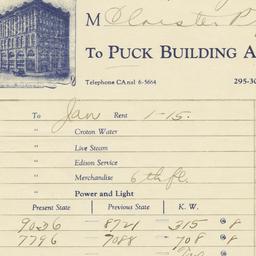 M Cloister P
To PUCK BUILDING A
Telephone CAnal 6-5664 295-30
To Jan Rent 1-15.
" Croton Water
" Live Steam
" Edison Service
" Merchandise 6th fl.
" Power and Light
Present State Previous State K. W.
9036 — 8721 — 315 @ 8
7796 — 7088 — 708 @ 8